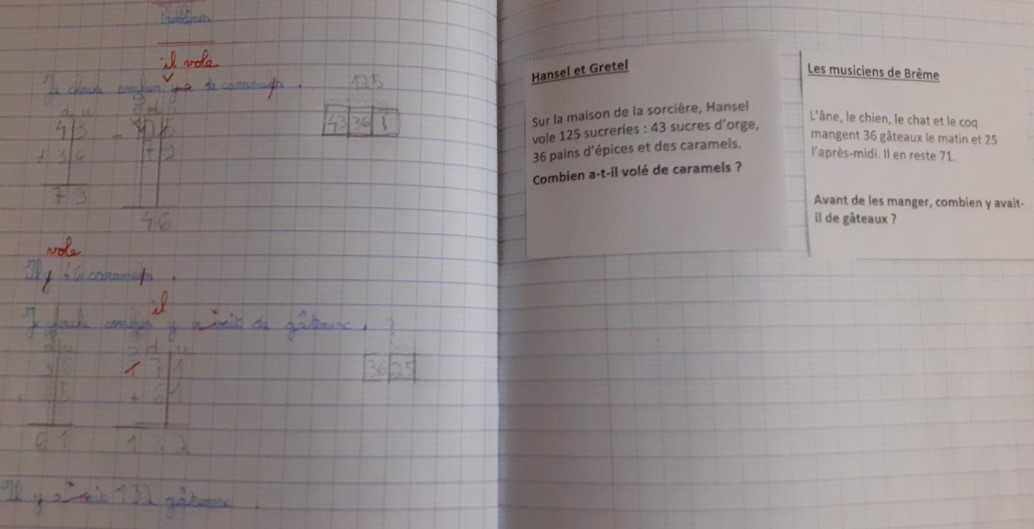 Problèmes
il vole
Je cherche combien de caramels.
125
d u
43 36 ?
43
+ 36
79
- 79
46
vole
Il y 46 caramels.
il
Je cherche combien y avait de gâteaux.
?
d u
36 25
71
+ 61
61
132
Il y avait 132 gâteaux.
Hansel et Gretel
Sur la maison de la sorcière, Hansel
vole 125 sucreries : 43 sucres d'orge,
36 pains d'épices et des caramels.
Combien a-t-il volé de caramels ?
Les musiciens de Brême
L'âne, le chien, le chat et le coq
mangent 36 gâteaux le matin et 25
l'après-midi. Il en reste 71.
Avant de les manger, combien y avait-
il de gâteaux ?